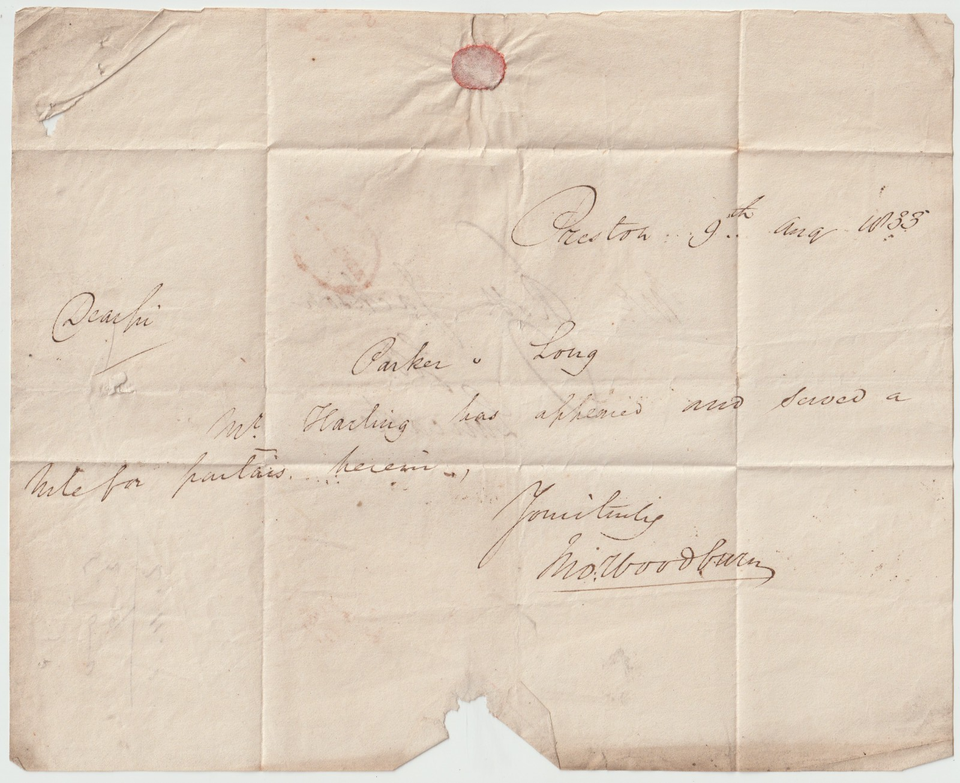 Preston 9th Aug 1833
Dear Sir
Parker v Long
Mr Harling has appeared and served a
Note for partars herein
Yours truly
Thos. Woodburn